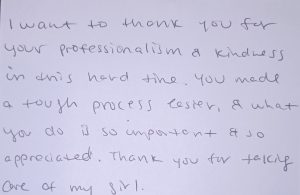 I want to thank you for
your professionalism & kindness
in this hard time. You made
a tough process easier, & what
you do is so important & so
appreciated. Thank you for taking
care of my girl.